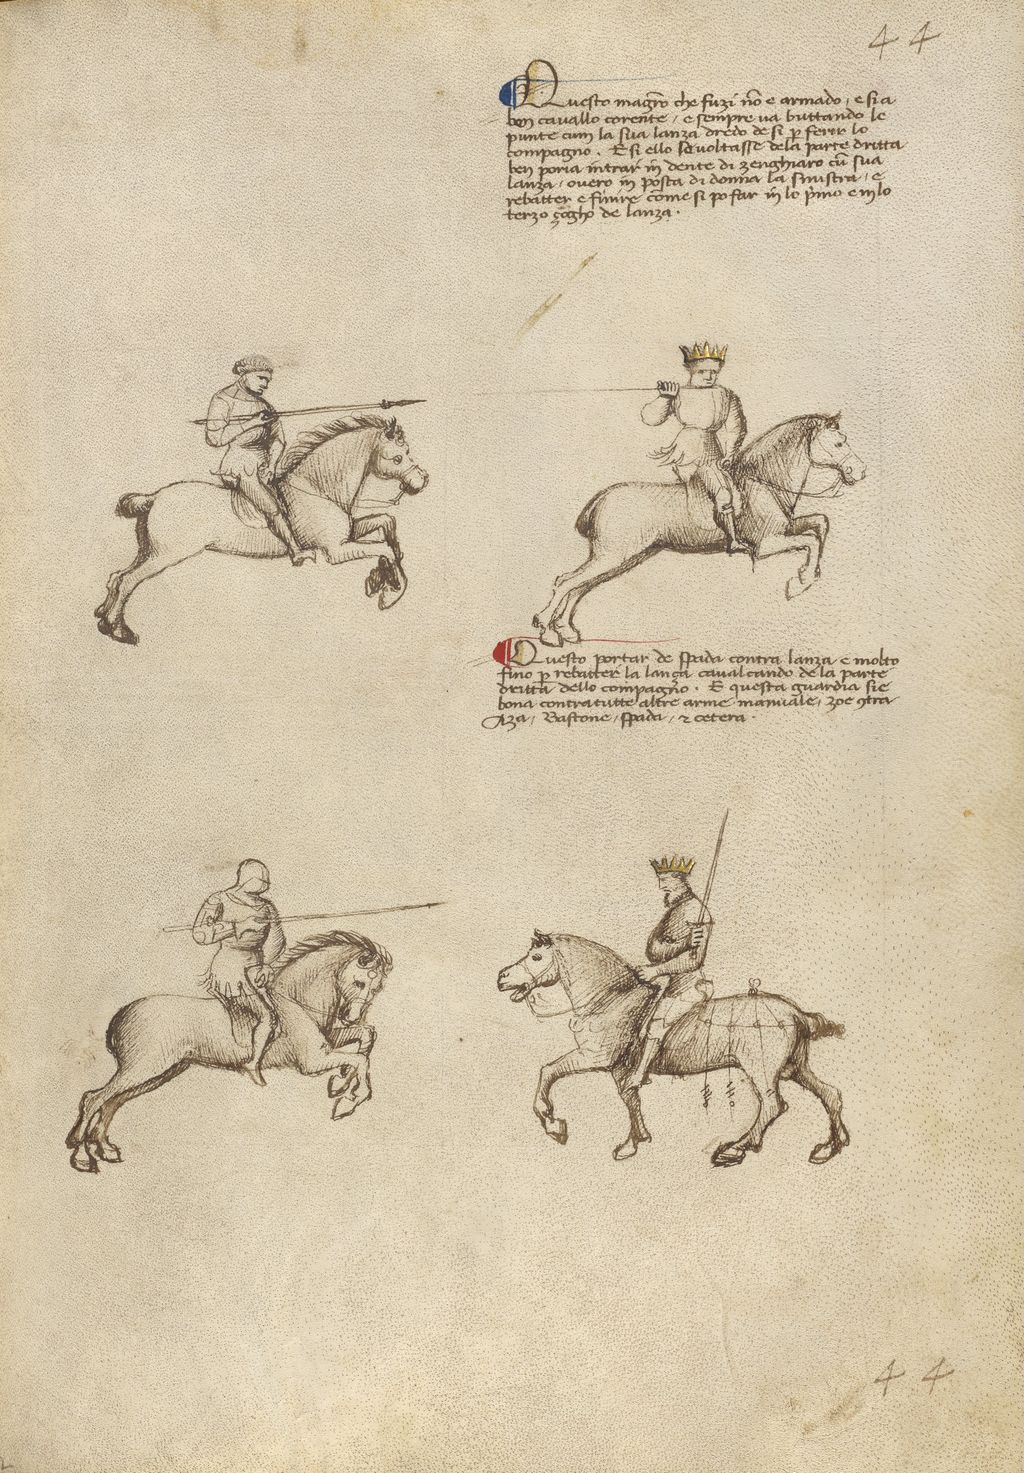 44
Questo magro che fuzi no e armado, e si a
bon cavallo corente, e sempre va buttando le
punte cum la sua lanza dredo de si p ferir lo
compagno. E si ello se voltasse dela parte dritta
ben poria intrar in dente di zenghiaro cu sua
lanza, overo in posta di donna la sinistra, e
rebatter e finire come si po far in lo pimo e in lo
terzo zogho de lanza.
Questo portar de spada contra lanza e molto
fino p rebatter la lanza cavalcando de la parte
dritta dello compagno. E questa guardia sie
bona contra tutte altre arme manuale, zoe 9tra
Aza, Bastone, spada, z cetera.
44